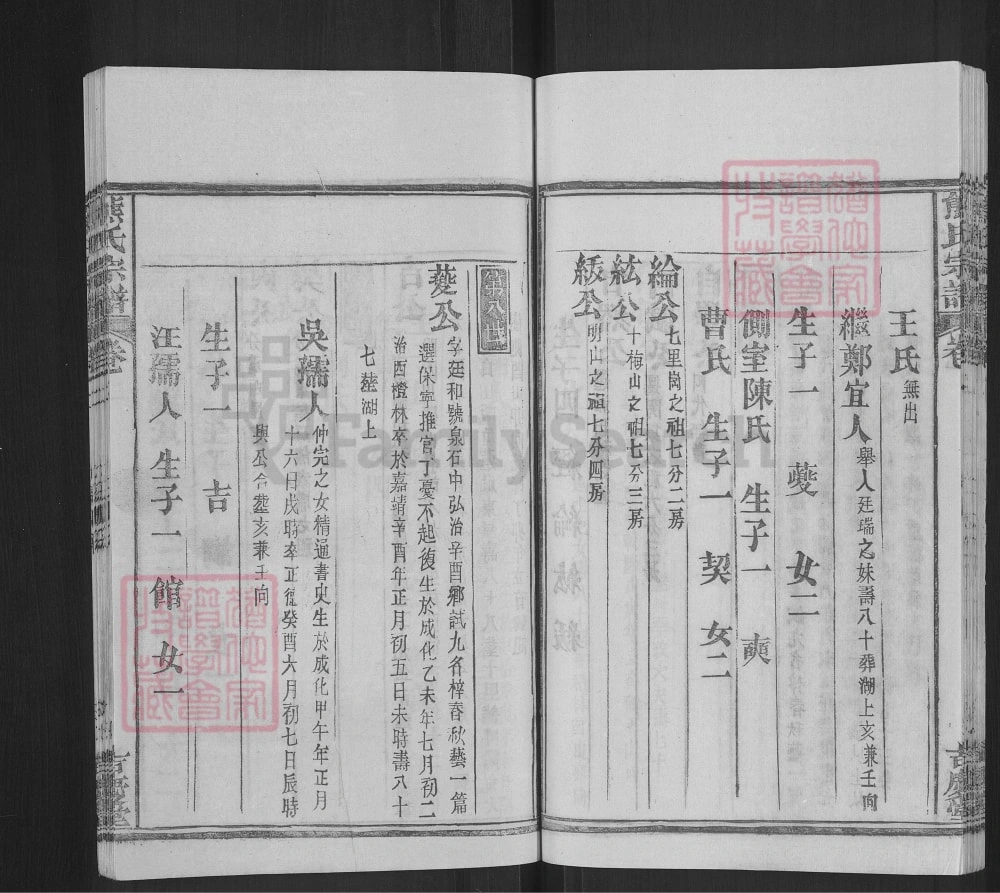 熊氏宗譜
王氏無出
繼鄭宜人舉人廷瑞之妹壽八十葬湖上亥兼壬向
生子一 夔 女二
側室陳氏 生子一 奭
曹氏 生子一 契 女二
綸公七里崗之祖七分二房
紘公十梅山之祖七分三房
䋈公明山之祖七分四房
第八世
夔公字廷和號泉石中弘治辛酉鄉試九名梓春秋藝一篇
選保寧推官丁憂不起復生於成化乙未年七月初二
治西橙林卒於嘉靖辛酉年正月初五日未時壽八十
七葬湖上
吳孺人仲完之女精通書史生於成化甲午年正月
十六日戌時卒正德癸酉六月初七日辰時
與公合葬亥兼壬向
生子一 吉
汪孺人 生子一 館 女一
熊氏宗譜
卷
吉慶堂
FamilySearch